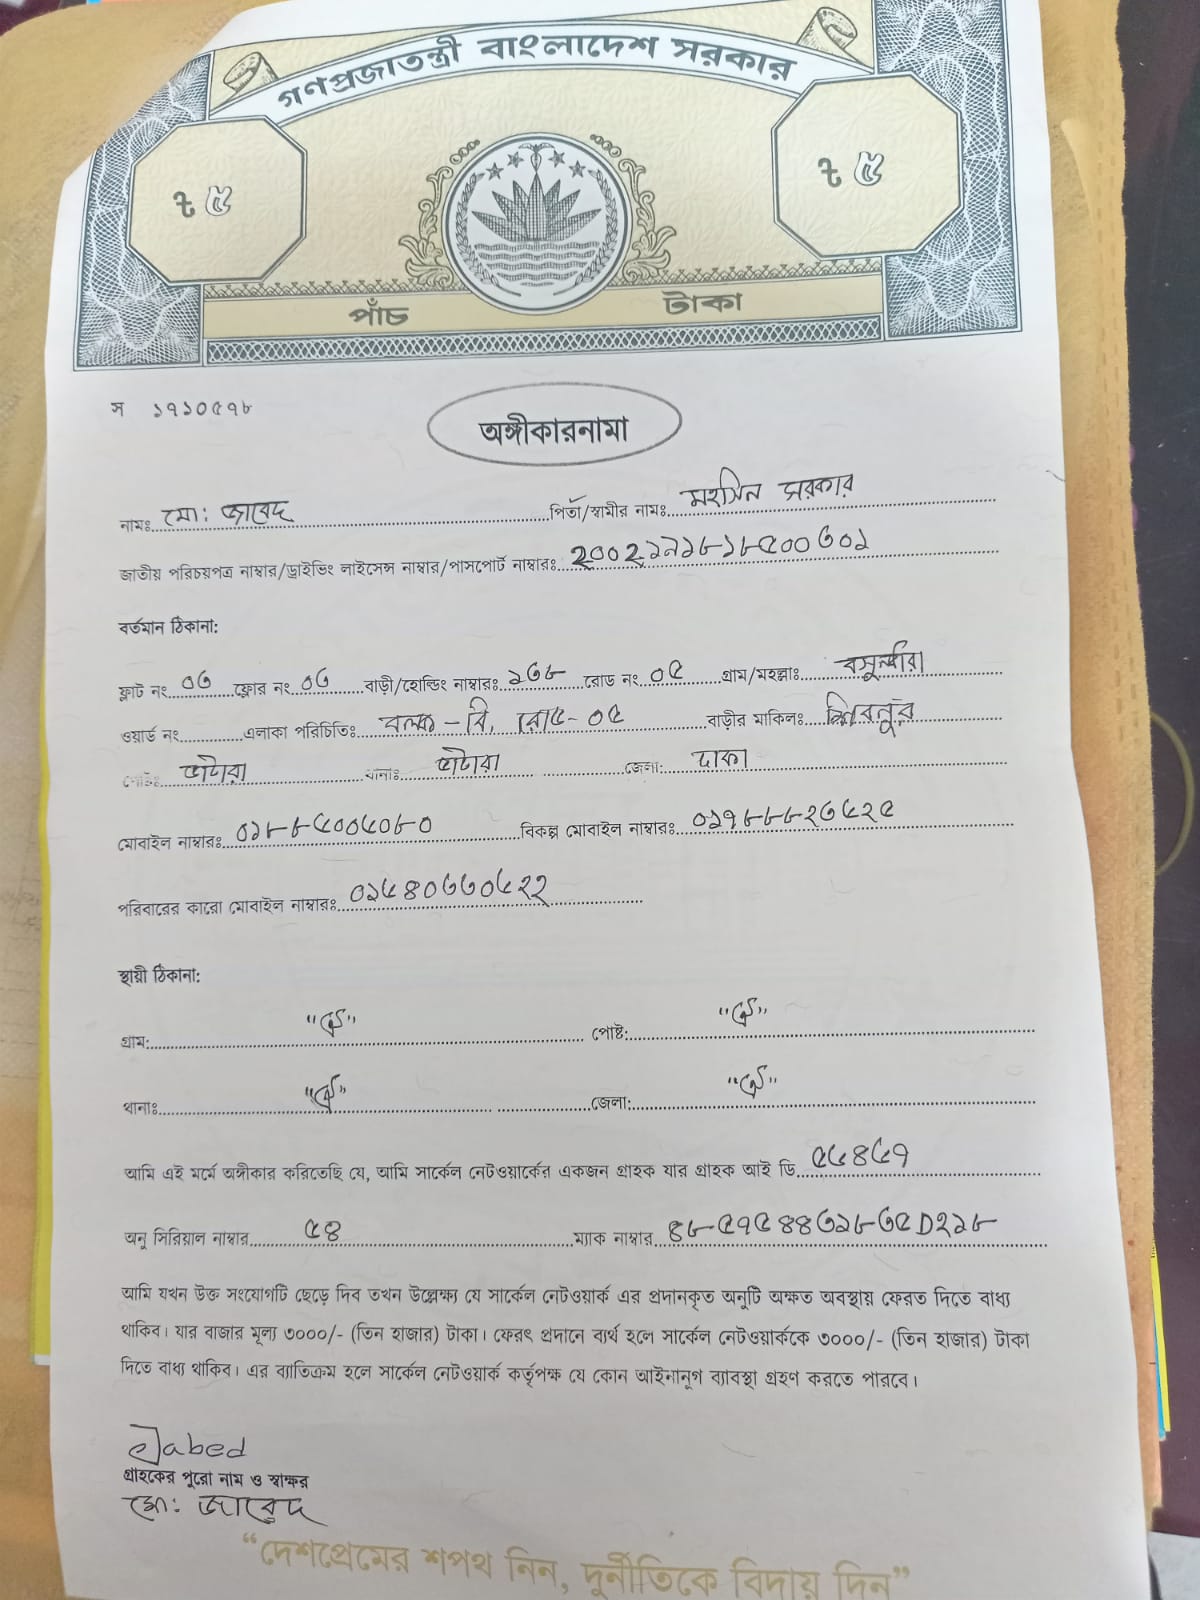 গণপ্রজাতন্ত্রী বাংলাদেশ সরকার
৳ ৫ ৳ ৫
পাঁচ টাকা
স ১৭১০৫৭৮
অঙ্গীকারনামা
নামঃ মো: জাবেদ পিতা/স্বামীর নামঃ মহসিন সরকার
জাতীয় পরিচয়পত্র নাম্বার/ড্রাইভিং লাইসেন্স নাম্বার/পাসপোর্ট নাম্বারঃ
বর্তমান ঠিকানা:
ফ্লাট নং ০৩ ফ্লোর নং ০৩ বাড়ী/হোল্ডিং নাম্বারঃ ১৩৮ রোড নং ০৫ গ্রাম/মহল্লাঃ বসুন্ধরা
ওয়ার্ড নং এলাকা পরিচিতিঃ ব্লক - বি, রোড- ০৫ বাড়ীর মালিকঃ
ভাটারা থানাঃ ভাটারা জেলা: ঢাকা
মোবাইল নাম্বারঃ ০১৮৮৬০০৬০৮০ বিকল্প মোবাইল নাম্বারঃ ০১৭৮৮৮২৩৬২৫
পরিবারের কারো মোবাইল নাম্বারঃ ০১৬৪০৩৩০৬২২
স্থায়ী ঠিকানা:
গ্রাম: "ঐ" পোষ্ট: "ঐ"
থানাঃ "ঐ" জেলা: "ঐ"
আমি এই মর্মে অঙ্গীকার করিতেছি যে, আমি সার্কেল নেটওয়ার্কের একজন গ্রাহক যার গ্রাহক আই ডি ৫৬৪৬৭
অনু সিরিয়াল নাম্বার ৫৪ ম্যাক নাম্বার ৪৮৫৭৫৪৪৩১৮৩৫D২১৮
আমি যখন উক্ত সংযোগটি ছেড়ে দিব তখন উল্লেক্ষ্য যে সার্কেল নেটওয়ার্ক এর প্রদানকৃত অনুটি অক্ষত অবস্থায় ফেরত দিতে বাধ্য
থাকিব। যার বাজার মূল্য ৩০০০/- (তিন হাজার) টাকা। ফেরৎ প্রদানে ব্যর্থ হলে সার্কেল নেটওয়ার্ককে ৩০০০/- (তিন হাজার) টাকা
দিতে বাধ্য থাকিব। এর ব্যাতিক্রম হলে সার্কেল নেটওয়ার্ক কর্তৃপক্ষ যে কোন আইনানুগ ব্যাবস্থা গ্রহণ করতে পারবে।
Jabed
গ্রাহকের পুরো নাম ও স্বাক্ষর
মো: জাবেদ
“দেশপ্রেমের শপথ নিন, দুর্নীতিকে বিদায় দিন”